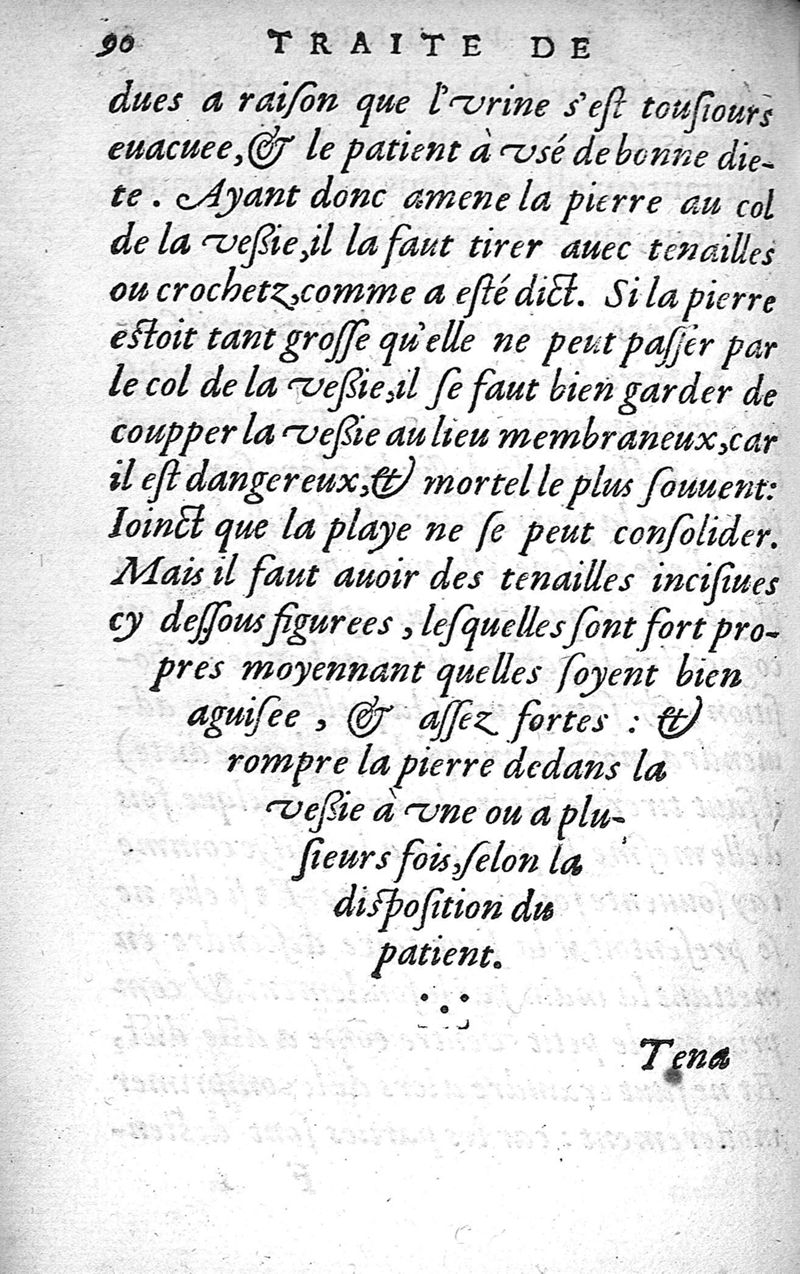 90 TRAITE DE
dues a raiſon que l'vrine s'eſt touſiours
euacuee, & le patient à vsé de bonne die-
te. Ayant donc amene la pierre au col
de la veſsie, il la faut tirer auec tenailles
ou crochetz, comme a eſté dict. Si la pierre
eſtoit tant groſſe qu'elle ne peut paſſer par
le col de la veſsie, il ſe faut bien garder de
coupper la veſsie au lieu membraneux, car
il eſt dangereux, & mortel le plus ſouuent:
Ioinct que la playe ne ſe peut conſolider.
Mais il faut auoir des tenailles inciſiues
cy deſſous figurees, leſquelles ſont fort pro-
pres moyennant quelles ſoyent bien
aguiſee, & aſſez fortes : &
rompre la pierre dedans la
veſsie à vne ou a plu-
ſieurs fois, ſelon la
diſpoſition du
patient.
Tena